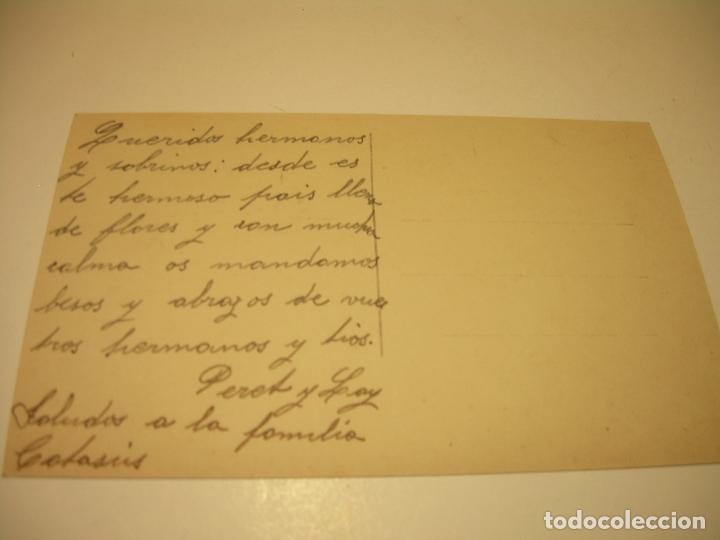 Queridos hermanos
y sobrinos: desde es
te hermoso pais lleno
de flores y con mucha
calma os mandamos
besos y abrazos de vues
tros hermanos y tios.
Peret y Loy
Saludos a la familia
Catasús
todocoleccion